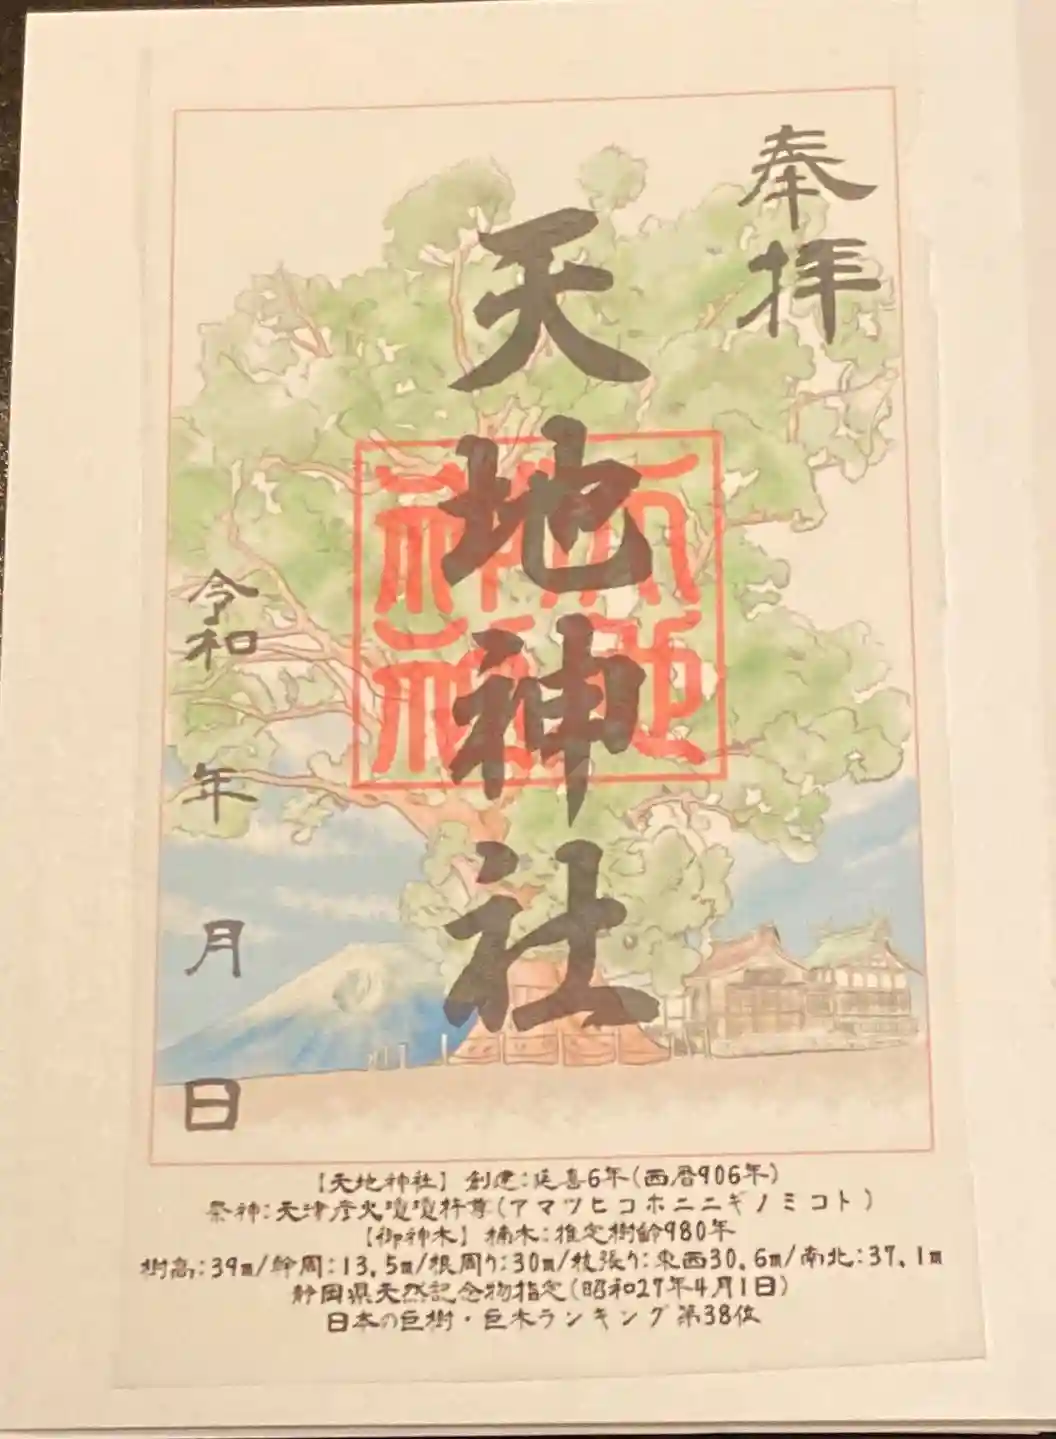 奉拝
天地神社
令和 年 月 日
【天地神社】創建:延喜6年(西暦906年)
祭神:天津彦火瓊瓊杵尊(アマツヒコホニニギノミコト)
【御神木】楠木:推定樹齢980年
樹高:39m/幹周:13.5m/根周り:30m/枝張り:東西30.6m/南北:37.1m
静岡県天然記念物指定(昭和27年4月1日)
日本の巨樹・巨木ランキング第38位